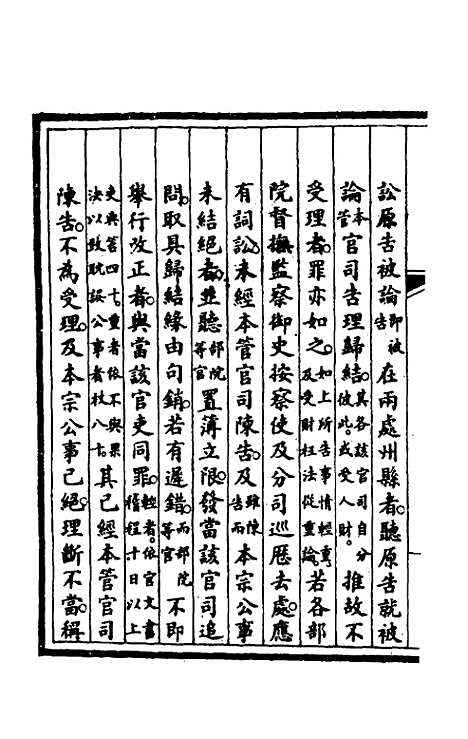 訟原告被論即被告在兩處州縣者聽原告就被
論本管官司告理歸結其各該官司自分彼此或受人財推故不
受理者罪亦如之如上所告事情輕重及受財枉法從重論若各部
院督撫監察御史按察使及分司巡歷去處應
有詞訟未經本管官司陳告及雖陳告而本宗公事
未結絕者並聽部院等官置簿立限發當該官司追
問取具歸結緣由句銷若有遲錯而部院等官不即
舉行改正者與當該官吏同罪輕者依官文書稽程十日以上
吏典笞四十重者依不與果決以致耽誤公事者杖八十其已經本管官司
陳告不為受理及本宗公事已絕理斷不當稱